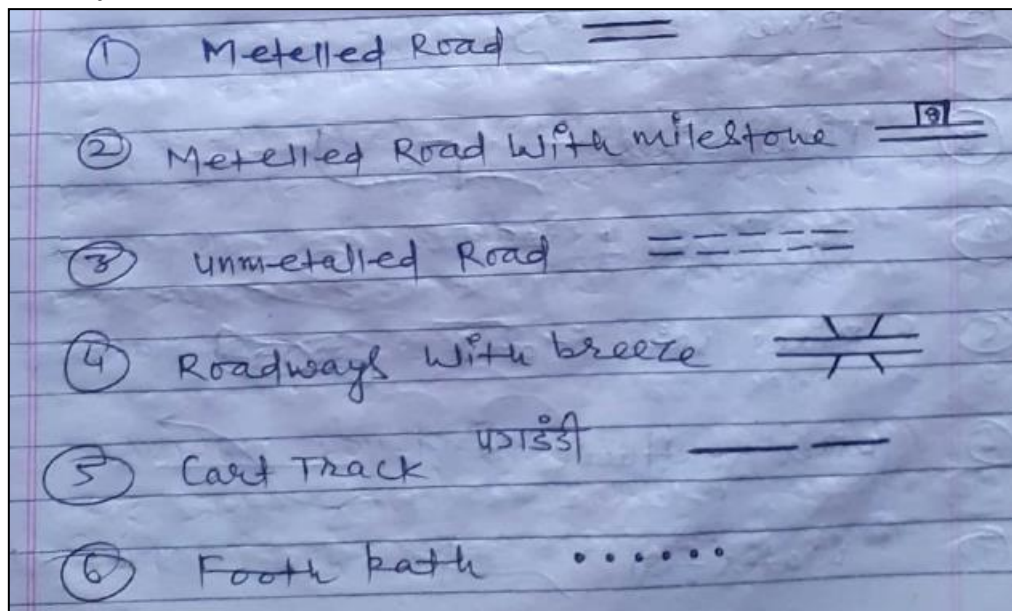 ① Metelled Road
② Metelled Road With milestone 8
③ Unmetalled Road
④ Roadways With breeze
⑤ Cart Track पगडंडी
⑥ Footh Path